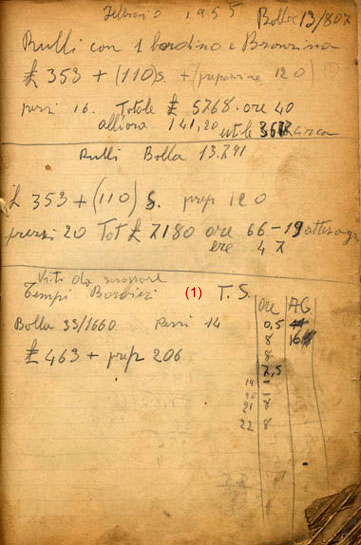 Febbraio 1955 Bolla 13/807
Rulli con 1 bordino e Bronzina
£ 353 + (110) s. + (preparazione 120)
pezzi 16. Totale £ 5768 - ore 40
141,20 utile
Rulli Bolla 13.791
£ 353 + (110) S. prep 120
pezzi 20 Tot £ 7180 ore 66 - 19 attesa
ore 47
Viti da
Tempi (1) T.S.
ore AG.
Bolla 33/1660 Pezzi 14 0,5
8 16
£ 463 + prep 206 8
7,5
14 -
8
21 8
22 8